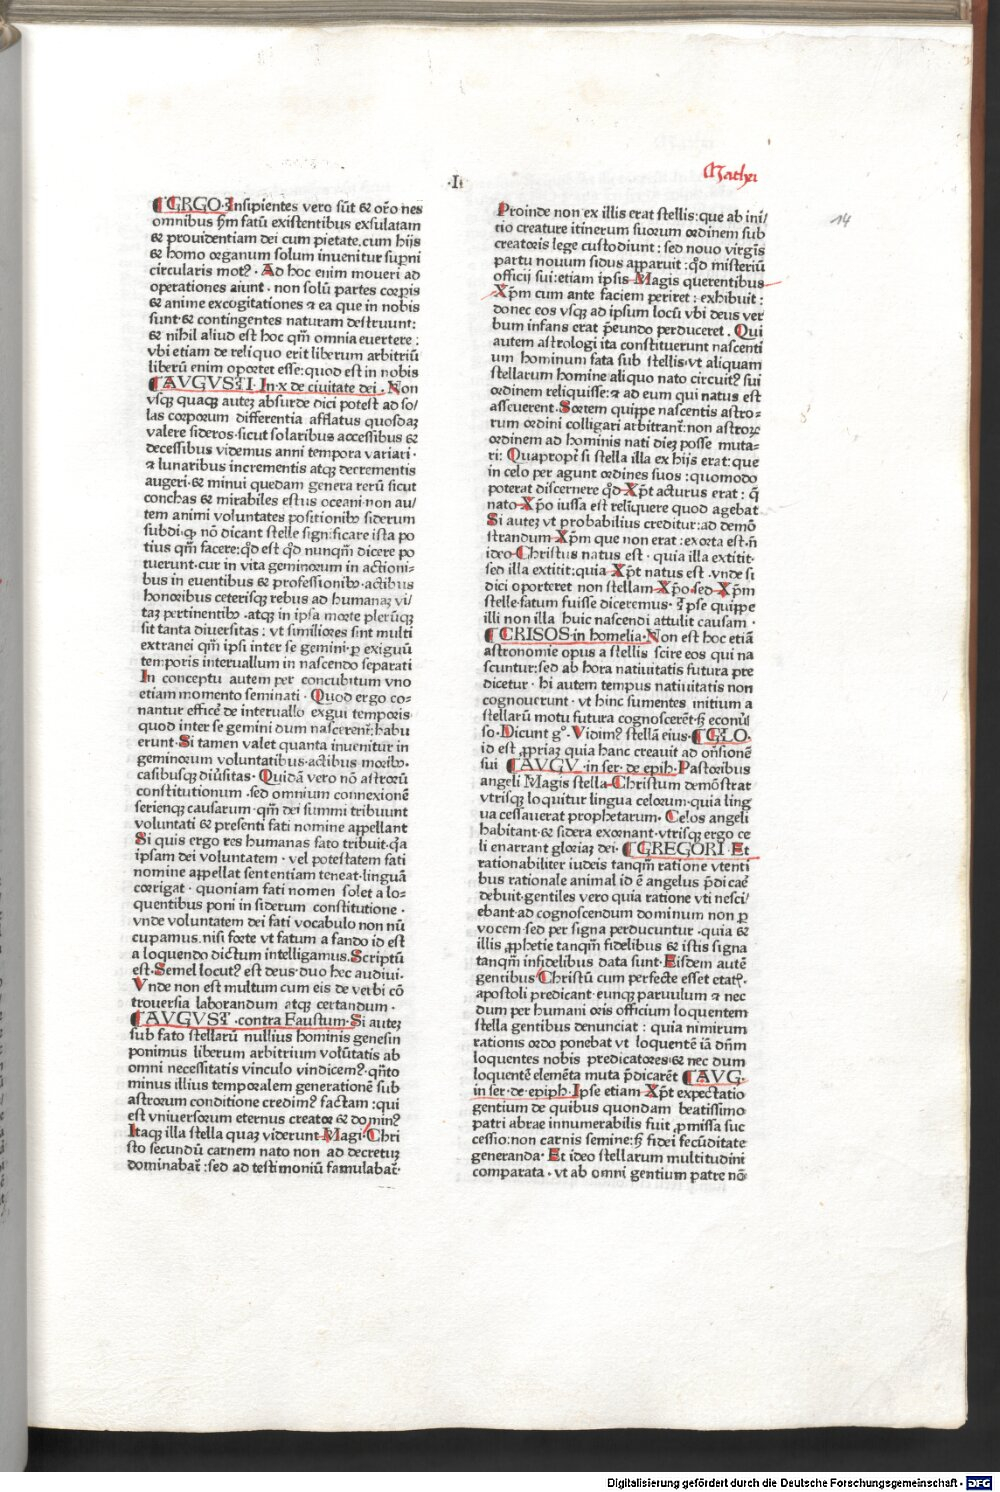 ·I·
Mathei
14
GRGO·Insipientes vero sūt & oēo nes
omnibus ħm fatū existentibus exsulatam
& prouidentiam dei cum pietate.cum hijs
& homo organum solum inuenitur supni
circularis mot?· Ad hoc enim moueri ad
operationes aiunt · non solū partes corpis
& anime excogitationes ⁊ ea que in nobis
sunt·& contingentes naturam destruunt:
& nihil aliud est hoc qm̄ omnia euertere:
vbi etiam de reliquo erit liberum arbitriū
liberū enim oportet esse:quod est in nobis
AUGUSTI·In·x·de ciuitate dei·Non
vsq; quaq; autez absurde dici potest ad so/
las corporum differentia afflatus quosdaz
valere sideros·sicut solaribus accessibus &
decessibus videmus anni tempora variari·
⁊ lunaribus incrementis atq; decrementis
augeri·& minui quedam genera rerū sicut
conchas & mirabiles estus oceani·non au/
tem animi voluntates positionib; siderum
subdi·q; nō dicant stelle significare ista po
tius qm̄ facere:qđ est qđ nunqm̄ dicere po
tuerunt·cur in vita geminorum in actioni=
bus in euentibus & professionib;·actibus
honoribus ceterisq; rebus ad humanaz vi/
taz pertinentib;·atq; in ipsa morte plerūq;
sit tanta diuersitas: vt similiores sint multi
extranei qm̄ ipsi inter se gemini·p exiguū
temporis interuallum in nascendo separati
In conceptu autem per concubitum vno
etiam momento seminati · Quod ergo co=
nantur efficē de interuallo exgui temporis
quod inter se gemini dum nascerent̄·habu
erunt·Si tamen valet quanta inuenitur in
geminorum voluntatibus·actibus morib;·
casibusq; diūsitas·Quidā vero nō astrorū
constitutionum ·sed omnium connexionē
serienq; causarum·qm̄ dei summi tribuunt
voluntati & presenti fati nomine appellant
Si quis ergo res humanas fato tribuit·qa
ipsam dei voluntatem · vel potestatem fati
nomine appellat sententiam teneat·linguā
corrigat · quoniam fati nomen solet a lo=
quentibus poni in siderum constitutione ·
vnde voluntatem dei fati vocabulo non nū
cupamus·nisi forte vt fatum a fando id est
a loquendo dictum intelligamus·Scriptū
est·Semel locut? est deus·duo hec audiui·
Vnde non est multum cum eis de verbi cō
trouersia laborandum atq; certandum ·
AUGUST·contra Faustum·Si autez
sub fato stellarū nullius hominis genesin
ponimus liberum arbitrium volūtatis ab
omni necessitatis vinculo vindicem?·qn̄to
minus illius temporalem generationē sub
astrorum conditione credim? factam:qui
est vniuersorum eternus creator & domin?
Itaq; illa stella quaz viderunt Magi·Chri
sto secundū carnem nato non ad decretuz
dominabat̄:sed ad testimoniū famulabat̄·
Proinde non ex illis erat stellis:que ab ini/
tio creature itinerum suorum ordinem sub
creatoris lege custodiunt:sed nouo virgīs
partu nouum sidus apparuit:qđ misteriū
officij sui:etiam ipsis Magis querentibus
Xp̄m cum ante faciem periret:exhibuit:
donec eos vsq; ad ipsum locū vbi deus ver
bum infans erat p̄eundo perduceret·Qui
autem astrologi ita constituerunt nascenti
um hominum fata sub stellis·vt aliquam
stellarum homine aliquo nato circuit? sui
ordinem reliquisse:⁊ ad eum qui natus est
asseuerent·Sortem quippe nascentis astro=
rum ordini colligari arbitrant̄:non astroꝝ
ordinem ad hominis nati diez posse muta=
ri: Quapropt̄ si stella illa ex hijs erat:que
in celo per agunt ordines suos:quomodo
poterat discernere qđ Xp̄t acturus erat: q̄
nato Xp̄o iussa est reliquere quod agebat
Si autez vt probabilius creditur:ad demō
strandum Xp̄m que non erat:exorta est·n̄
ideo Christus natus est · quia illa extitit·
sed illa extitit:quia Xp̄t natus est·vnde si
dici oporteret non stellam Xp̄o·sed Xp̄m
stelle·fatum fuisse diceremus·ip̄se quippe
illi non illa huic nascendi attulit causam·
CRISOS·in homelia·Non est hoc etiā
astronomie opus a stellis scire eos qui na
scuntur:sed ab hora natiuitatis futura pre
dicetur· hi autem tempus natiuitatis non
cognouerunt·vt hinc sumentes initium a
stellarū motu futura cognoscerēt·ſ; econu̓
so·Dicunt g°·Vidim? stellā eius·GLO·
id est ꝓpriaz quia hanc creauit ad on̄sionē
sui AUGU·in ser·de epih·Pastoribus
angeli Magis stella Christum demōstrat
vtrisq; loquitur lingua celorum·quia ling
ua cessauerat prophetarum·Celos angeli
habitant·& sidera exornant·vtrisq; ergo ce
li enarrant gloriaz dei·GREGORI·Et
rationabiliter iudeis tanqm̄ ratione vtenti
bus rationale animal id ē angelus p̄dicaē
debuit·gentiles vero quia ratione vti nesci/
ebant·ad cognoscendum dominum non p
vocem·sed per signa perducuntur·quia &
illis ꝓphetie tanqm̄ fidelibus & istis signa
tanqm̄ infidelibus data sunt·Eisdem autē
gentibus Christū cum perfecte esset etat̄·
apostoli predicant·eunq; paruulum ⁊ nec
dum per humani oris officium loquentem
stella gentibus denunciat : quia nimirum
rationis ordo ponebat vt loquentē iā dn̄m
loquentes nobis predicatores·& nec dum
loquentē elemēta muta p̄dicarēt AUG·
in ser·de·epiph·Ipse etiam Xp̄t expectatio
gentium de quibus quondam beatissimo
patri abrae innumerabilis fuit ꝓmissa suc
cessio:non carnis semine:ſ; fidei fecūditate
generanda· Et ideo stellarum multitudini
comparata·vt ab omni gentium patre nō
Digitalisierung gefördert durch die Deutsche Forschungsgemeinschaft - DFG